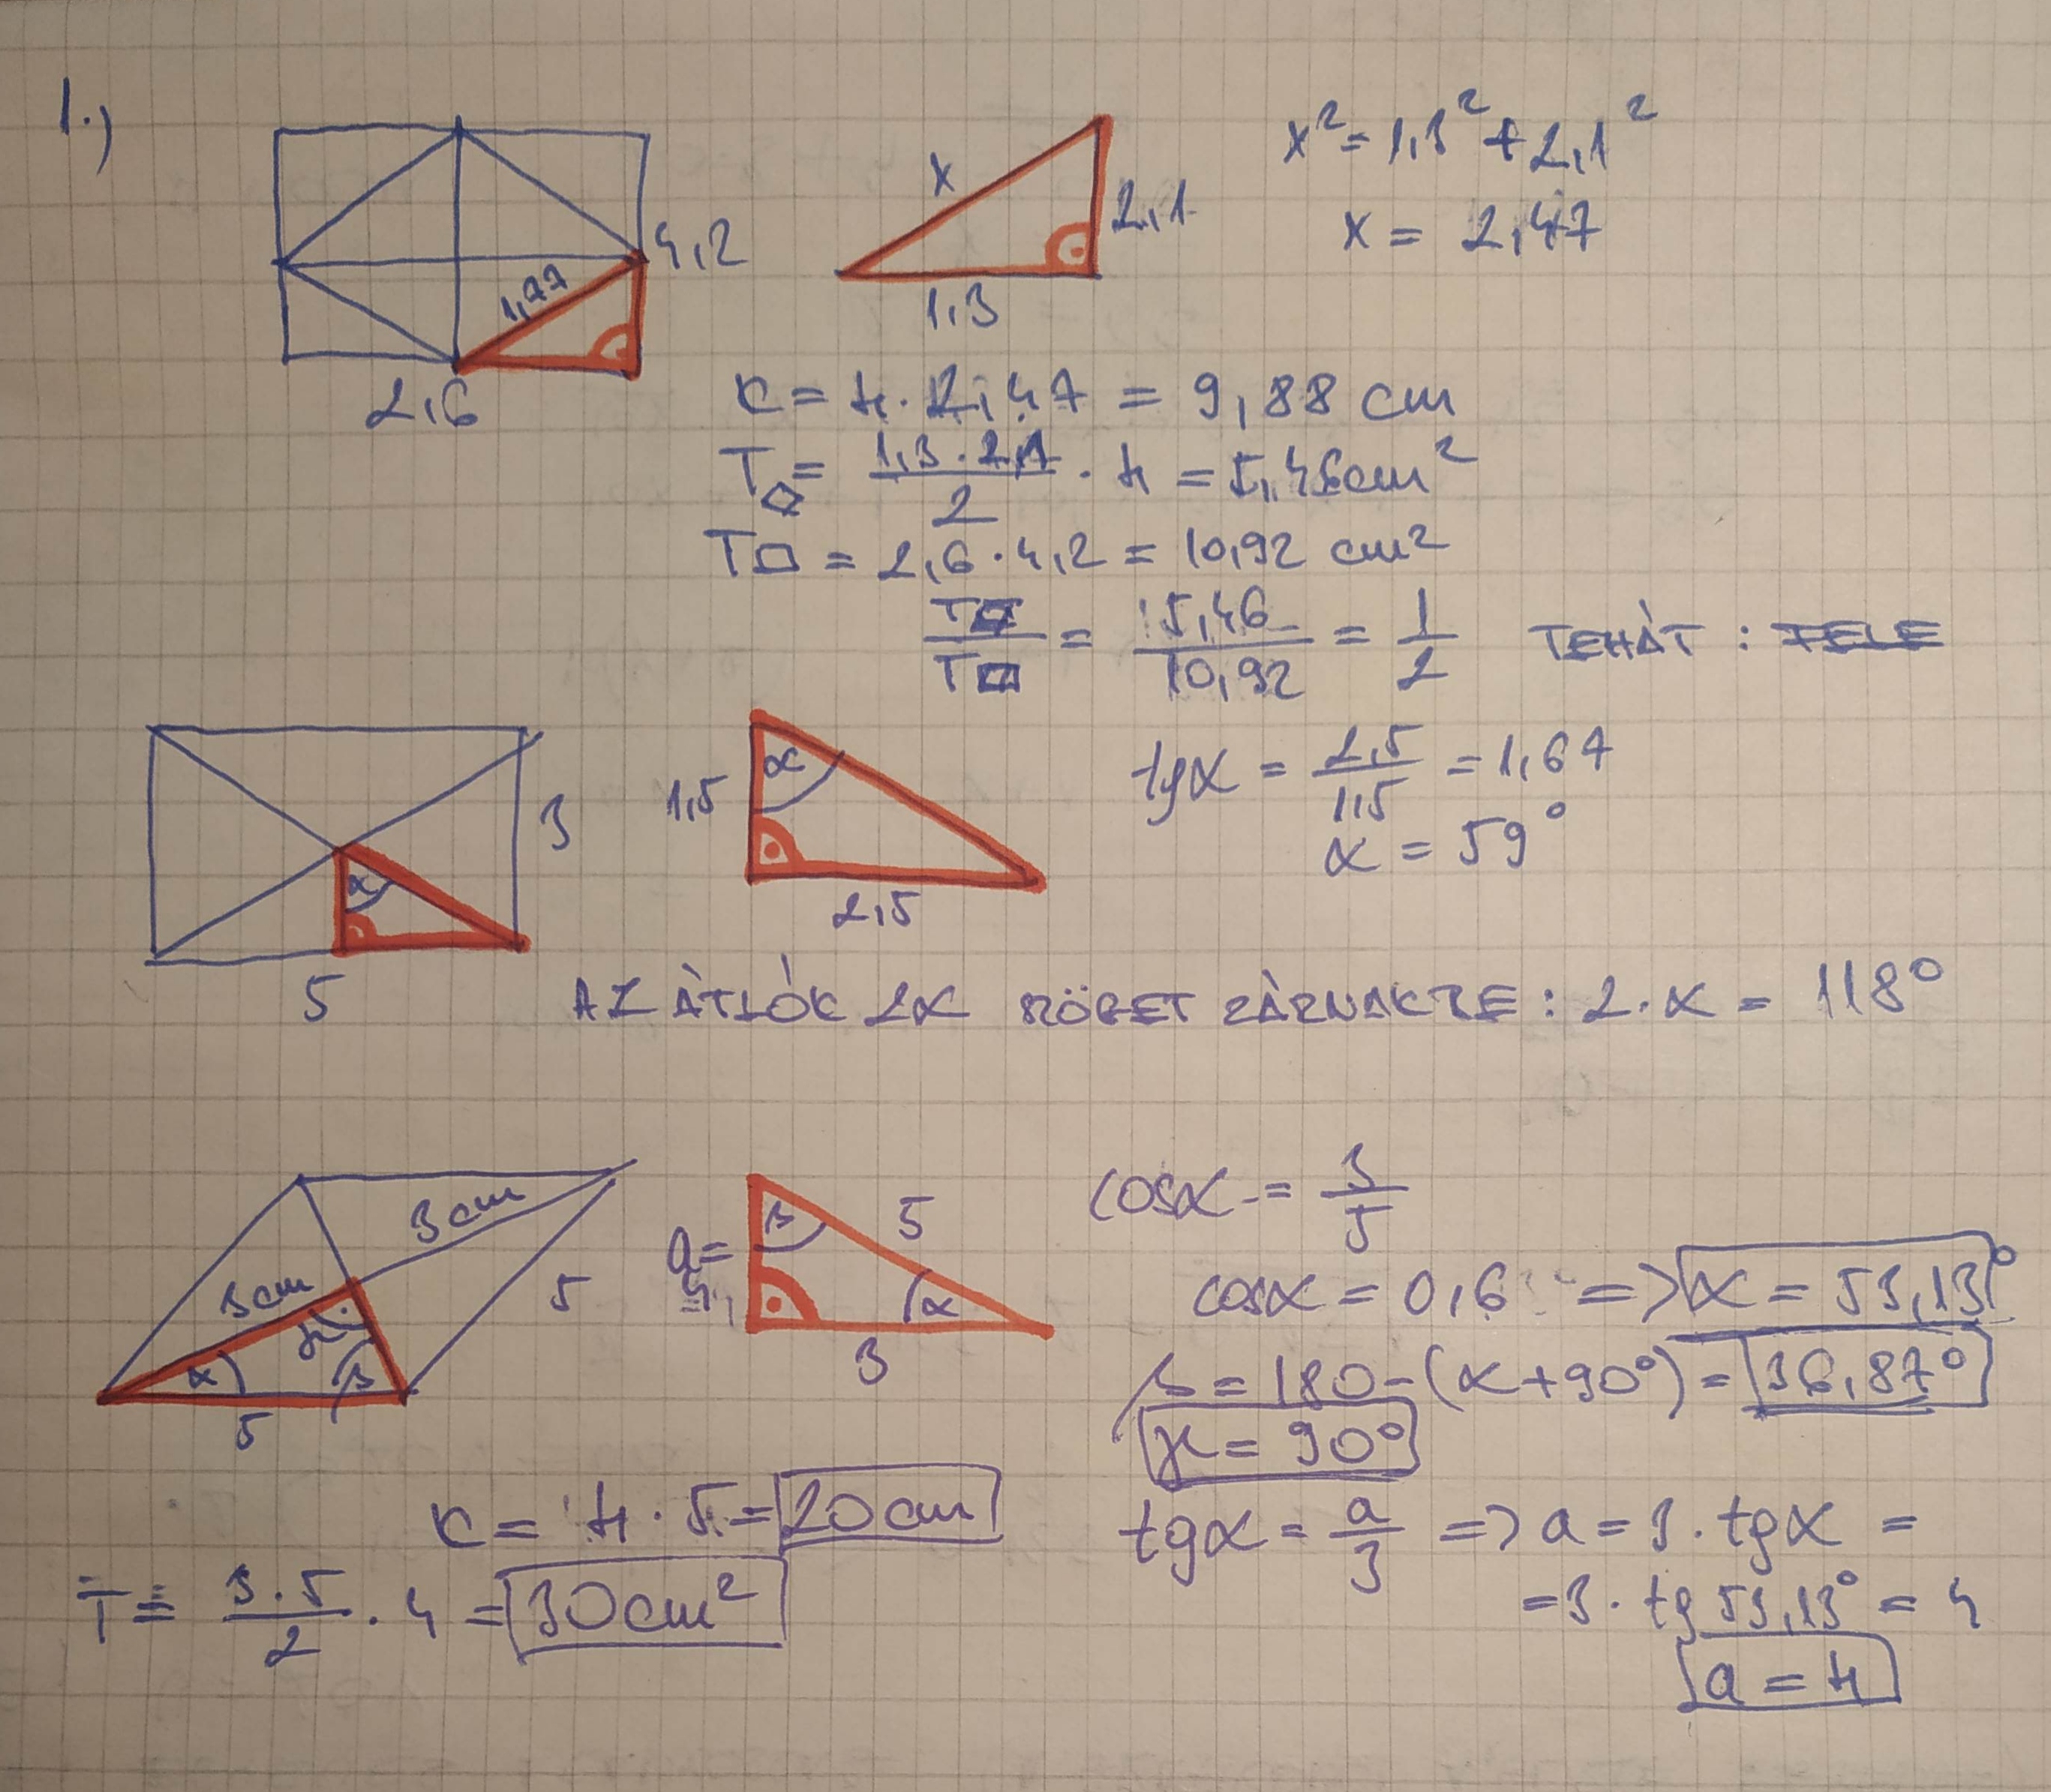 1.)
x² = 1,3² + 2,1²
x
2,1
1,3
x = 2,47
4,2
1,77
2,6
K = 4 · 2,47 = 9,88 cm
T▱ = 1,3 · 2,1 / 2 · 4 = 5,46 cm²
T□ = 2,6 · 4,2 = 10,92 cm²
T▱ / T□ = 5,46 / 10,92 = 1/2 TEHÁT : FELE
3
α
5
1,5
α
2,5
tgα = 2,5 / 1,5 = 1,67
α = 59°
AZ ÁTLÓK 2α SZÖGET ZÁRNAK BE : 2 · α = 118°
3 cm
3 cm
5
α
β
5
a =
4
β
5
α
3
cosα = 3/5
cosα = 0,6 => α = 53,13°
β = 180 - (α + 90°) = 36,87°
γ = 90°
K = 4 · 5 = 20 cm
tgα = a/3 => a = 3 · tgα =
= 3 · tg 53,13° = 4
T = 3 · 5 / 2 · 4 = 30 cm²
a = 4